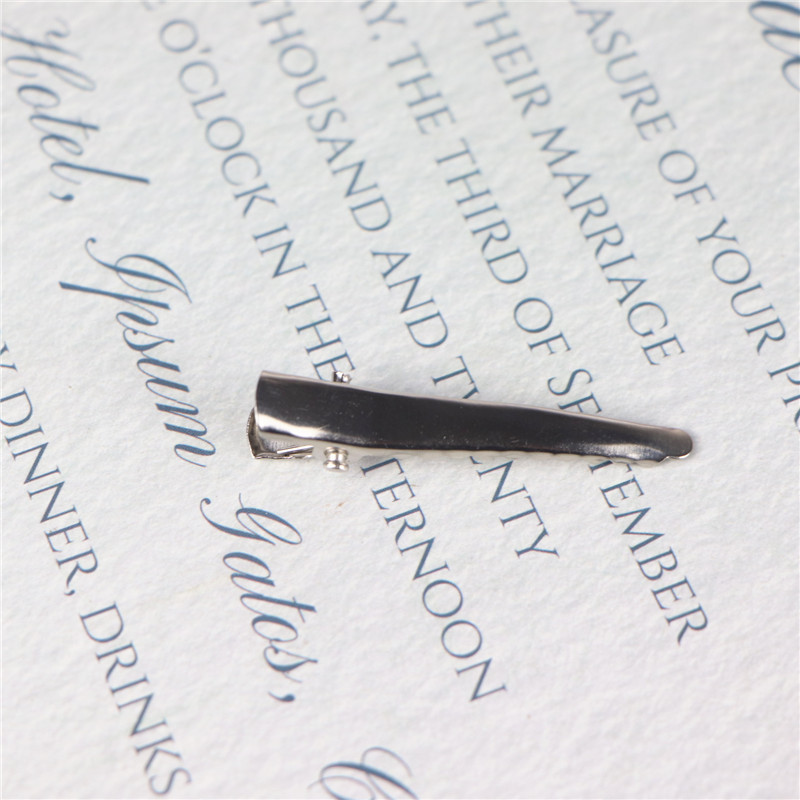 EASURE OF YOUR PR
THEIR MARRIAGE
AY, THE THIRD OF SEPTEMBER
THOUSAND AND TWENTY
O'CLOCK IN THE AFTERNOON
Hotel, Ipsum Gatos,
DINNER, DRINKS